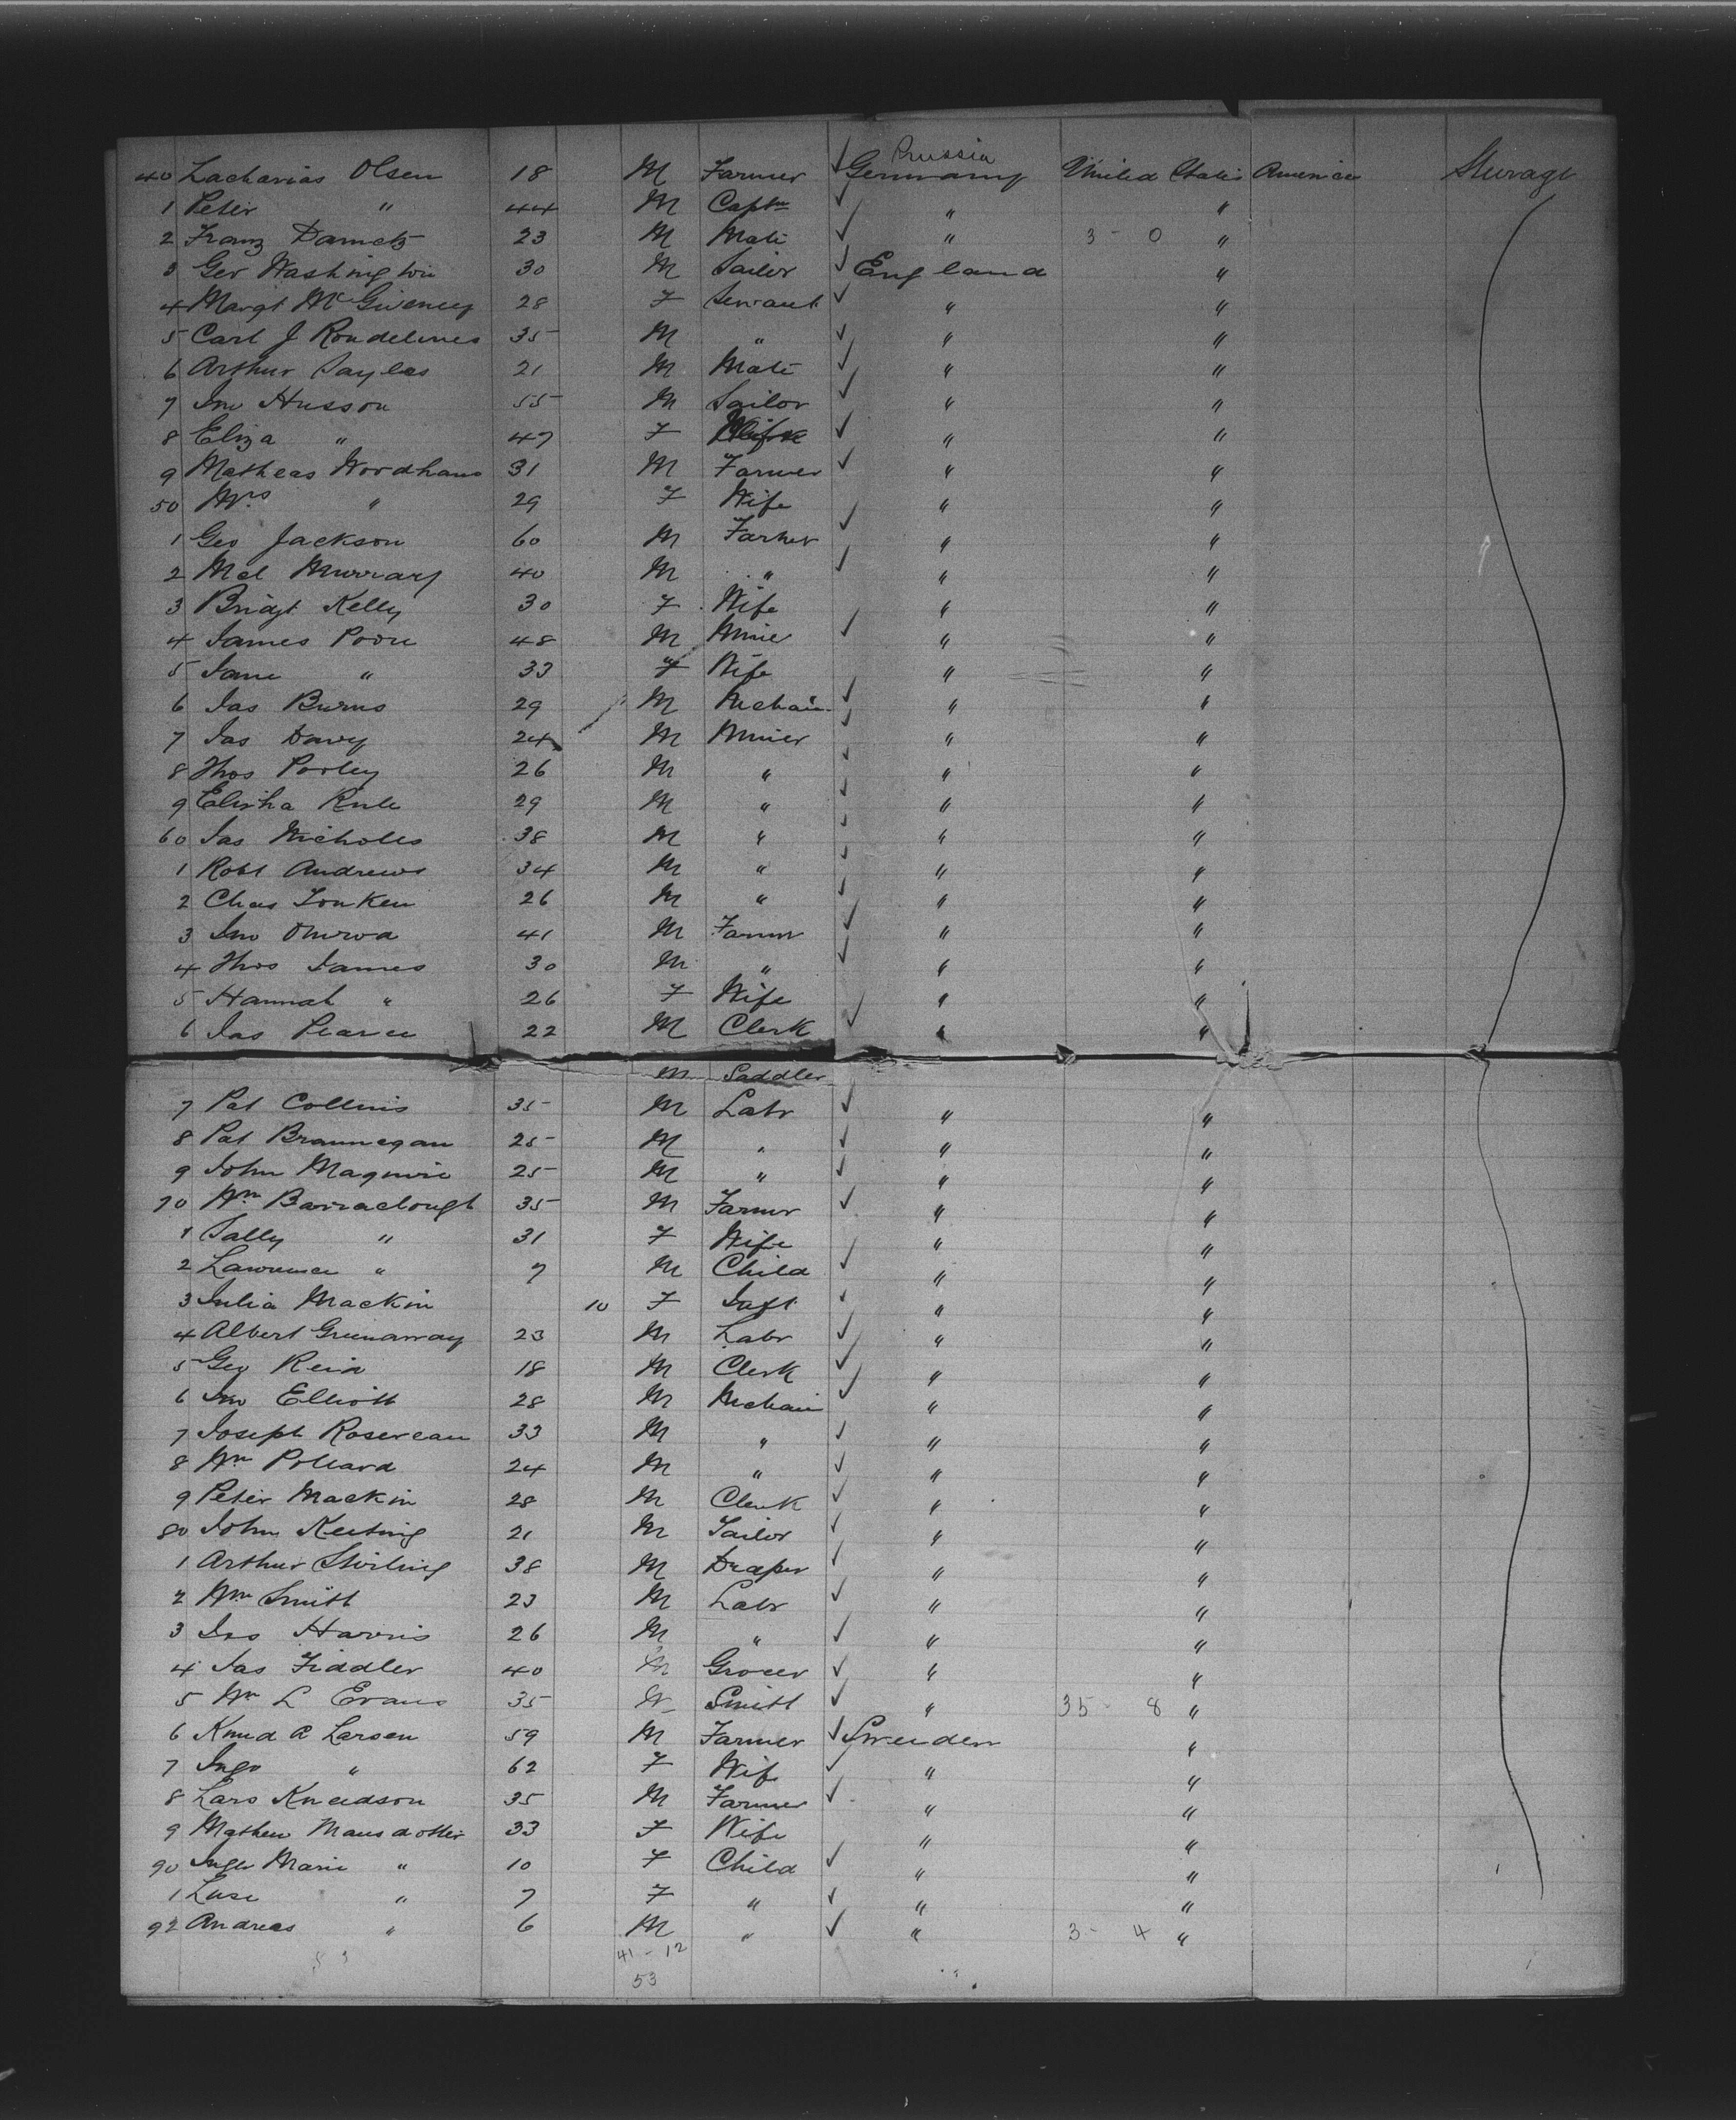 Prussia
40 Zacharias Olsen 18 M Farmer ✓ Germany United States America Steerage
1 Peter " 44 M Captn ✓ " "
2 Franz 23 M Mate ✓ " 3 - 0 "
3 Geo Washington 30 M Sailor ✓ England "
4 Margt McGiveney 28 F Servant ✓ " "
5 Carl J 35 M " ✓ " "
6 Arthur Sayles 21 M Mate ✓ " "
7 Jno Husson 55 M Sailor ✓ " "
8 Eliza " 47 F Wife ✓ " "
9 Matheas Wordhaus 31 M Farmer ✓ " "
50 Mrs " 29 F Wife " "
1 Geo Jackson 60 M Farmer ✓ " "
2 Mcl Murrary 40 M " ✓ " "
3 Bridgt Kelly 30 F Wife " "
4 James 48 M Miner ✓ " "
5 Jane " 33 F Wife " "
6 Jas Burns 29 M Mchan ✓ " "
7 Jas Davy 24 M Miner ✓ " "
8 Thos Pooley 26 M " ✓ " "
9 Elisha Rule 29 M " ✓ " "
60 Jas Nicholls 38 M " ✓ " "
1 Robt Andrews 34 M " ✓ " "
2 Chas Tonken 26 M " ✓ " "
3 Jno 41 M Farmr ✓ " "
4 Thos James 30 M " ✓ " "
5 Hannah " 26 F Wife " "
6 Jas Pearce 22 M Clerk ✓ " "
M Saddler
7 Pat Collins 35 M Labr ✓ " "
8 Pat Brannegan 25 M " ✓ " "
9 John Maguire 25 M " ✓ " "
70 Wm Barraclough 35 M Farmr ✓ " "
1 Sally " 31 F Wife " "
2 Lawrence " 7 M Child ✓ " "
3 Julia Mackin 10 F Inft ✓ " "
4 Albert Greenaway 23 M Labr ✓ " "
5 Geo 18 M Clerk ✓ " "
6 Jno Elliott 28 M Mchan ✓ " "
7 Joseph Rosereau 33 M " ✓ " "
8 Wm Pollard 24 M " ✓ " "
9 Peter Mackin 28 M Clerk ✓ " "
80 John Keeting 21 M Tailor ✓ " "
1 Arthur Stirling 38 M Draper ✓ " "
2 Wm Smith 23 M Labr ✓ " "
3 Jas Harris 26 M " ✓ " "
4 Jas Fiddler 40 M Grocer ✓ " "
5 Wm L Evans 35 M Smith ✓ " 35 - 8 "
6 Knud A Larsen 59 M Farmer ✓ Sweeden "
7 Inga " 62 F Wife ✓ " "
8 Lars Knudson 35 M Farmer ✓ " "
9 Mathew Mansdotter 33 F Wife " "
90 Inger Marie " 10 F Child ✓ " "
1 Luse " 7 F " ✓ " "
92 Andreas " 6 M " ✓ " 3 - 4 "
41 - 12
53